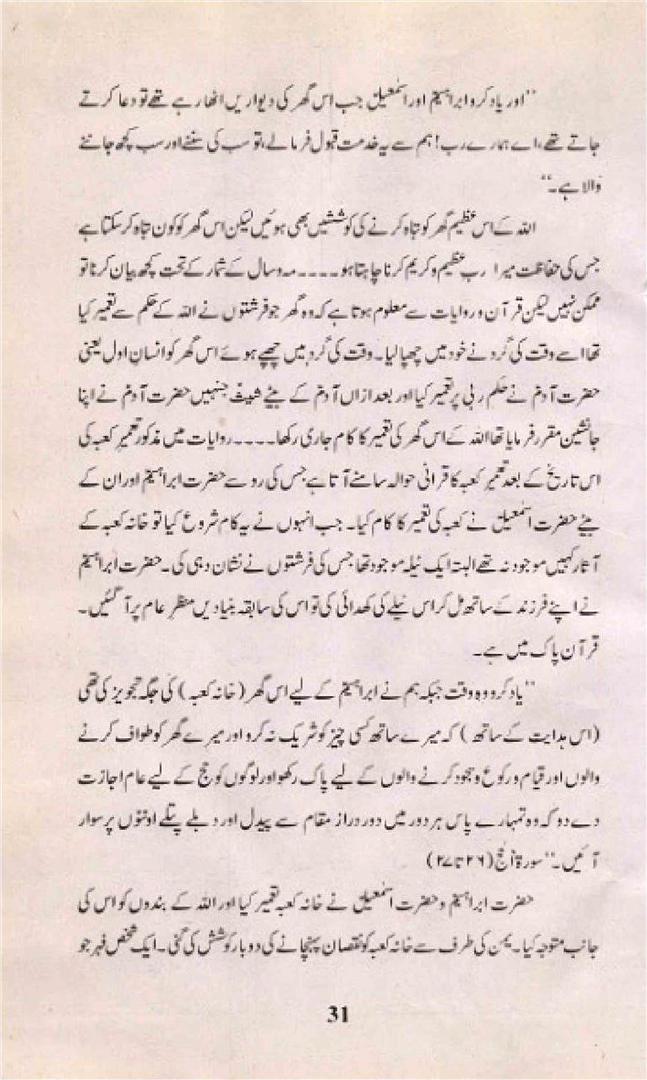 "اور یاد کرو ابراہیمؑ اور اسمٰعیلؑ جب اس گھر کی دیواریں اٹھا رہے تھے تو دعا کرتے
جاتے تھے، اے ہمارے رب! ہم سے یہ خدمت قبول فرما لے، تو سب کی سننے اور سب کچھ جاننے
والا ہے۔"
اللہ کے اس عظیم گھر کو تباہ کرنے کی کوششیں بھی ہوئیں لیکن اس گھر کو کون تباہ کر سکتا ہے
جس کی حفاظت میرا رب عظیم و کریم کرنا چاہتا ہو۔۔۔۔ مہ و سال کے شمار کے تحت کچھ بیان کرنا تو
ممکن نہیں لیکن قرآن و روایات سے معلوم ہوتا ہے کہ وہ گھر جو فرشتوں نے اللہ کے حکم سے تعمیر کیا
تھا اسے وقت کی گرد نے خود میں چھپا لیا۔ وقت کی گرد میں چھپے ہوئے اس گھر کو انسانِ اول یعنی
حضرت آدمؑ نے حکم ربی پر تعمیر کیا اور بعد ازاں آدمؑ کے بیٹے شیثؑ جنہیں حضرت آدمؑ نے اپنا
جانشین مقرر فرمایا تھا اللہ کے اس گھر کی تعمیر کا کام جاری رکھا۔۔۔۔ روایات میں مذکور تعمیرِ کعبہ کی
اس تاریخ کے بعد تعمیرِ کعبہ کا قرآنی حوالہ سامنے آتا ہے جس کی رو سے حضرت ابراہیمؑ اور ان کے
بیٹے حضرت اسمٰعیلؑ نے کعبہ کی تعمیر کا کام کیا۔ جب انہوں نے یہ کام شروع کیا تو خانہ کعبہ کے
آثار کہیں موجود نہ تھے البتہ ایک ٹیلہ موجود تھا جس کی فرشتوں نے نشان دہی کی۔ حضرت ابراہیمؑ
نے اپنے فرزند کے ساتھ مل کر اس ٹیلے کی کھدائی کی تو اس کی سابقہ بنیادیں منظرِ عام پر آ گئیں۔
قرآن پاک میں ہے۔
"یاد کرو وہ وقت جبکہ ہم نے ابراہیمؑ کے لیے اس گھر (خانہ کعبہ) کی جگہ تجویز کی تھی
(اس ہدایت کے ساتھ) کہ میرے ساتھ کسی چیز کو شریک نہ کرو اور میرے گھر کو طواف کرنے
والوں اور قیام و رکوع و سجود کرنے والوں کے لیے پاک رکھو اور لوگوں کو حج کے لیے عام اجازت
دے دو کہ وہ تمہارے پاس ہر دور میں دور دراز مقام سے پیدل اور دبلے پتلے اونٹوں پر سوار
آئیں۔" سورۃ الحج (۲۶ تا ۲۷)
حضرت ابراہیمؑ و حضرت اسمٰعیلؑ نے خانہ کعبہ تعمیر کیا اور اللہ کے بندوں کو اس کی
جانب متوجہ کیا۔ یمن کی طرف سے خانہ کعبہ کو نقصان پہنچانے کی دو بار کوشش کی گئی۔ ایک شخص فہر جو
31